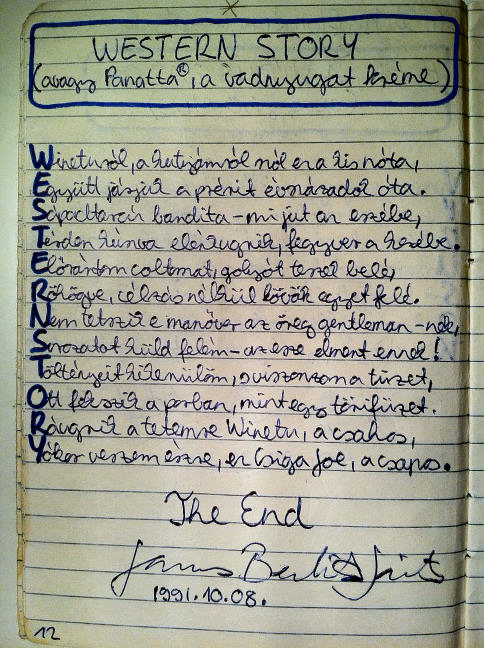 WESTERN STORY
(avagy Panatta®, a vadnyugat kréme)
Wineturól, a kutyámról szól ez a kis nóta,
Együtt járjuk a prérit évszázadok óta.
Sapadtarcú bandita – mi jut an eszébe,
Térden kúszva elénk ugrik, fegyver a kezébe.
Előrántom coltomat, golyót teszek belé,
Röhögve, célzás nélkül lövök egyet felé.
Nem tetszik e manőver az öreg gentleman-nek,
Sorozatot küld felém – az esze elment ennek!
Töltényeit kikerülöm, s viszonzom a tüzet,
Ott fekszik a porban, mint egy törifüzet.
Ráugrik a tetemre Winetu, a csahos,
Ykor veszem észre, ez Csiga Joe, a csapos.
The End
1991.10.08.
12